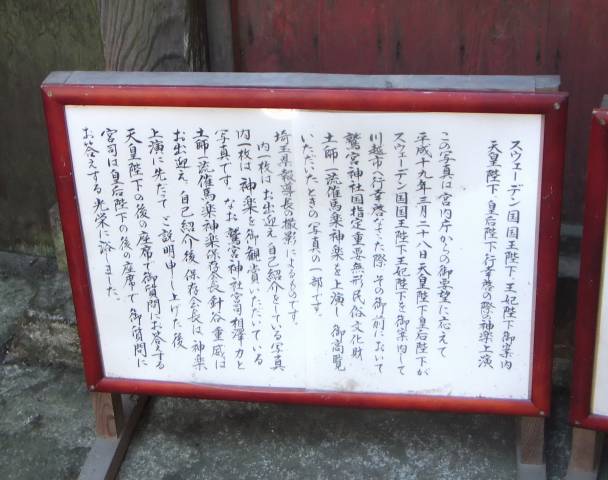 スウェーデン国国王陛下、王妃陛下御案内
天皇陛下、皇后陛下行幸啓の際神楽上演
この写真は宮内庁からの御要望に応えて
平成十九年三月二十八日天皇陛下皇后陛下が
スウェーデン国国王陛下王妃陛下を御案内して
川越市へ行幸啓なさった際、その御前において
鷲宮神社国指定重要無形民俗文化財
土師一流催馬楽神楽を上演し、御高覧
いただいたときの写真の一部です。
埼玉県報導長の撮影によるものです。
内一枚はお出迎え、自己紹介をしている写真
内一枚は神楽を御観賞いただいている
写真です。なお、鷲宮神社宮司相澤力と
土師一流催馬楽神楽保存会長針谷重威は
お出迎え、自己紹介後、保存会長は、神楽
上演に先だって説明申し上げた後
天皇陛下の後の座席で御質問にお答えする
宮司は皇后陛下の後の座席で御質問に
お答えする光栄に浴しました。